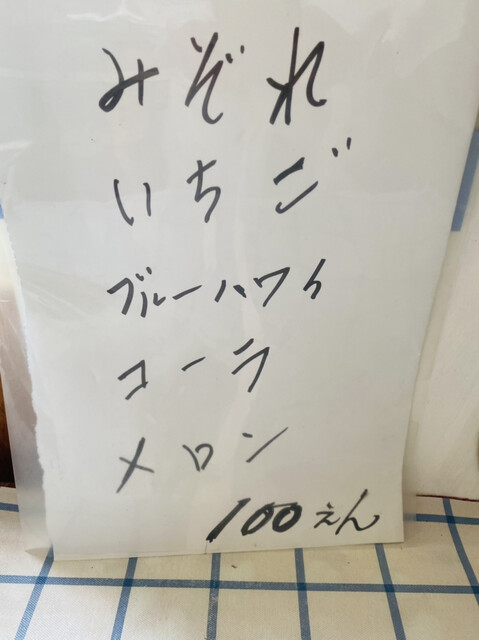 みぞれ
いちご
ブルーハワイ
コーラ
メロン
100えん